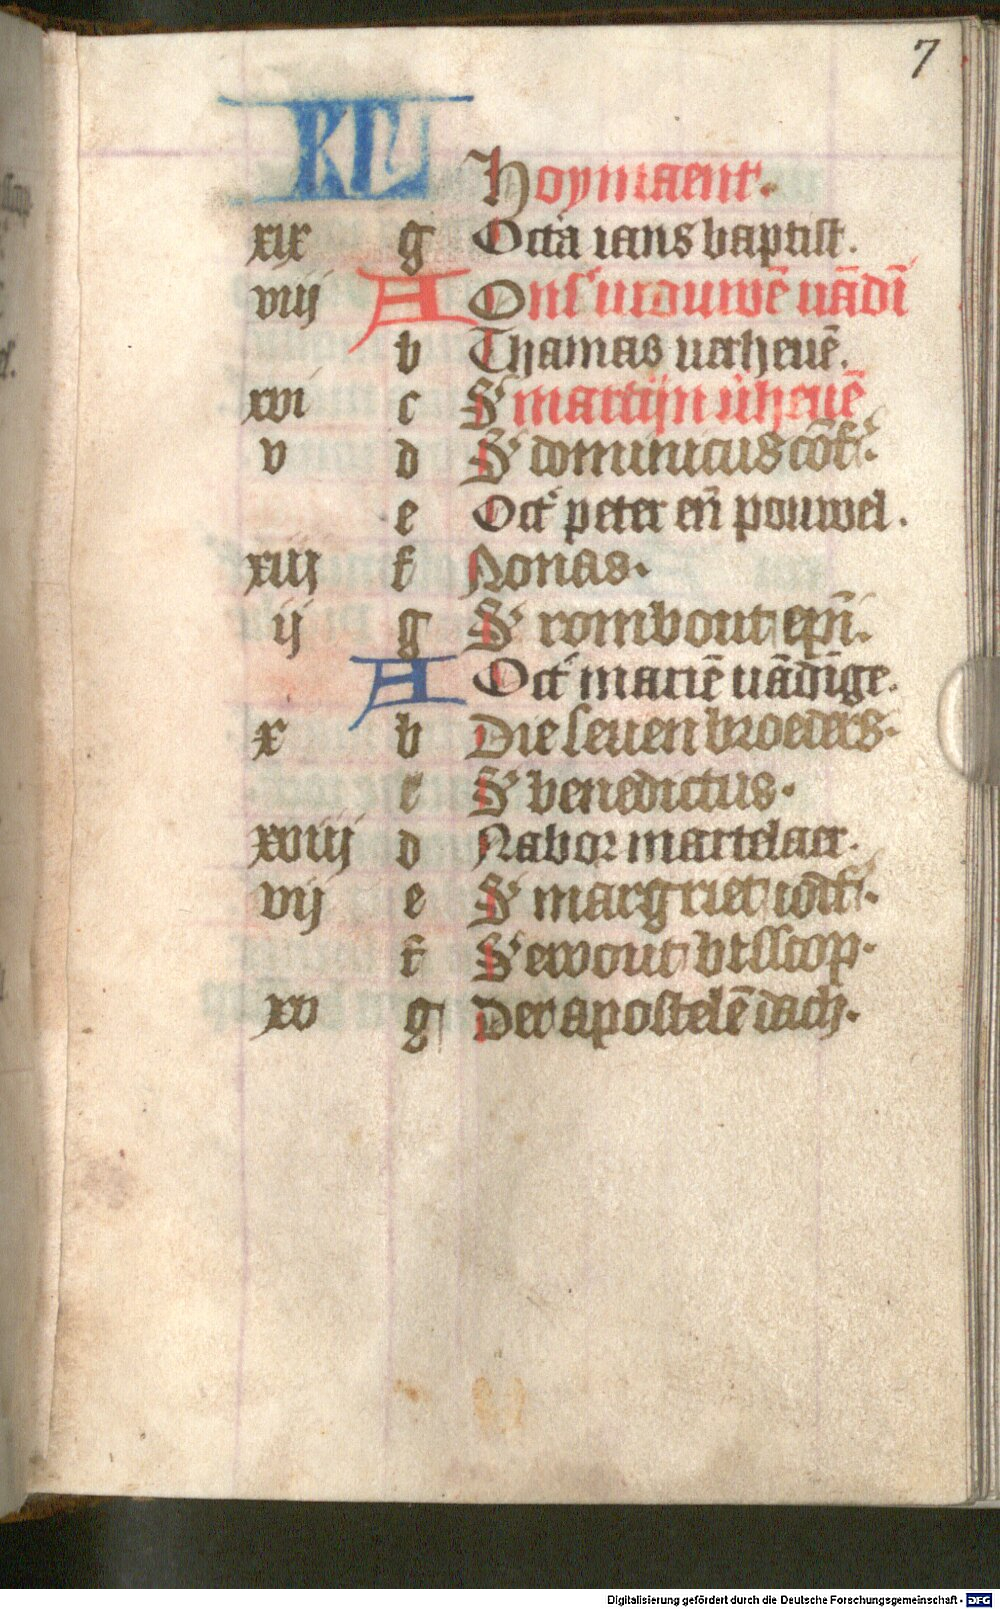 7
KL
Hoymaent.
xix g Octā ians baptist.
viij A Ons' vrouwē uādī
b Thamas uerheuē.
xvi c S' martijn ūheuē
v d S' dominicus cōf'.
e Oct' peter eñ pouwel.
xiij f Nonas.
ij g S' rombout epī.
A Oct' mariē uādīge.
x b Die seuen broeders.
c S' benedictus.
xviij d Nabor martelaer.
vij e S' margriet iōcf'.
f S' ewout bisscop.
xv g Der apostelē dach.
Digitalisierung gefördert durch die Deutsche Forschungsgemeinschaft - DFG